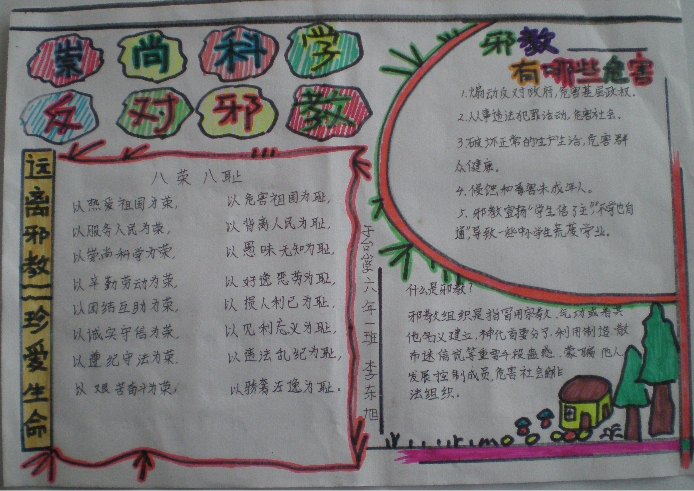 崇尚科学
反对邪教
远离邪教——珍爱生命
八荣八耻
以热爱祖国为荣，以危害祖国为耻，
以服务人民为荣，以背离人民为耻，
以崇尚科学为荣，以愚昧无知为耻，
以辛勤劳动为荣，以好逸恶劳为耻，
以团结互助为荣，以损人利己为耻，
以诚实守信为荣，以见利忘义为耻，
以遵纪守法为荣，以违法乱纪为耻，
以艰苦奋斗为荣，以骄奢淫逸为耻。
六年一班 李东旭
邪教
有哪些危害
1.煽动反对政府，危害基层政权。
2.从事违法犯罪活动，危害社会。
3.破坏正常的生产生活，危害群
众健康。
4.侵蚀和毒害未成年人。
5.邪教宣扬“学生信了主”“不学也自
通”，导致一些中小学生荒废学业。
什么是邪教？
邪教组织是指冒用宗教、气功或者其
他名义建立，神化首要分子，利用制造、散
布迷信邪说等重要手段蛊惑、蒙骗他人，
发展、控制成员，危害社会的非
法组织。